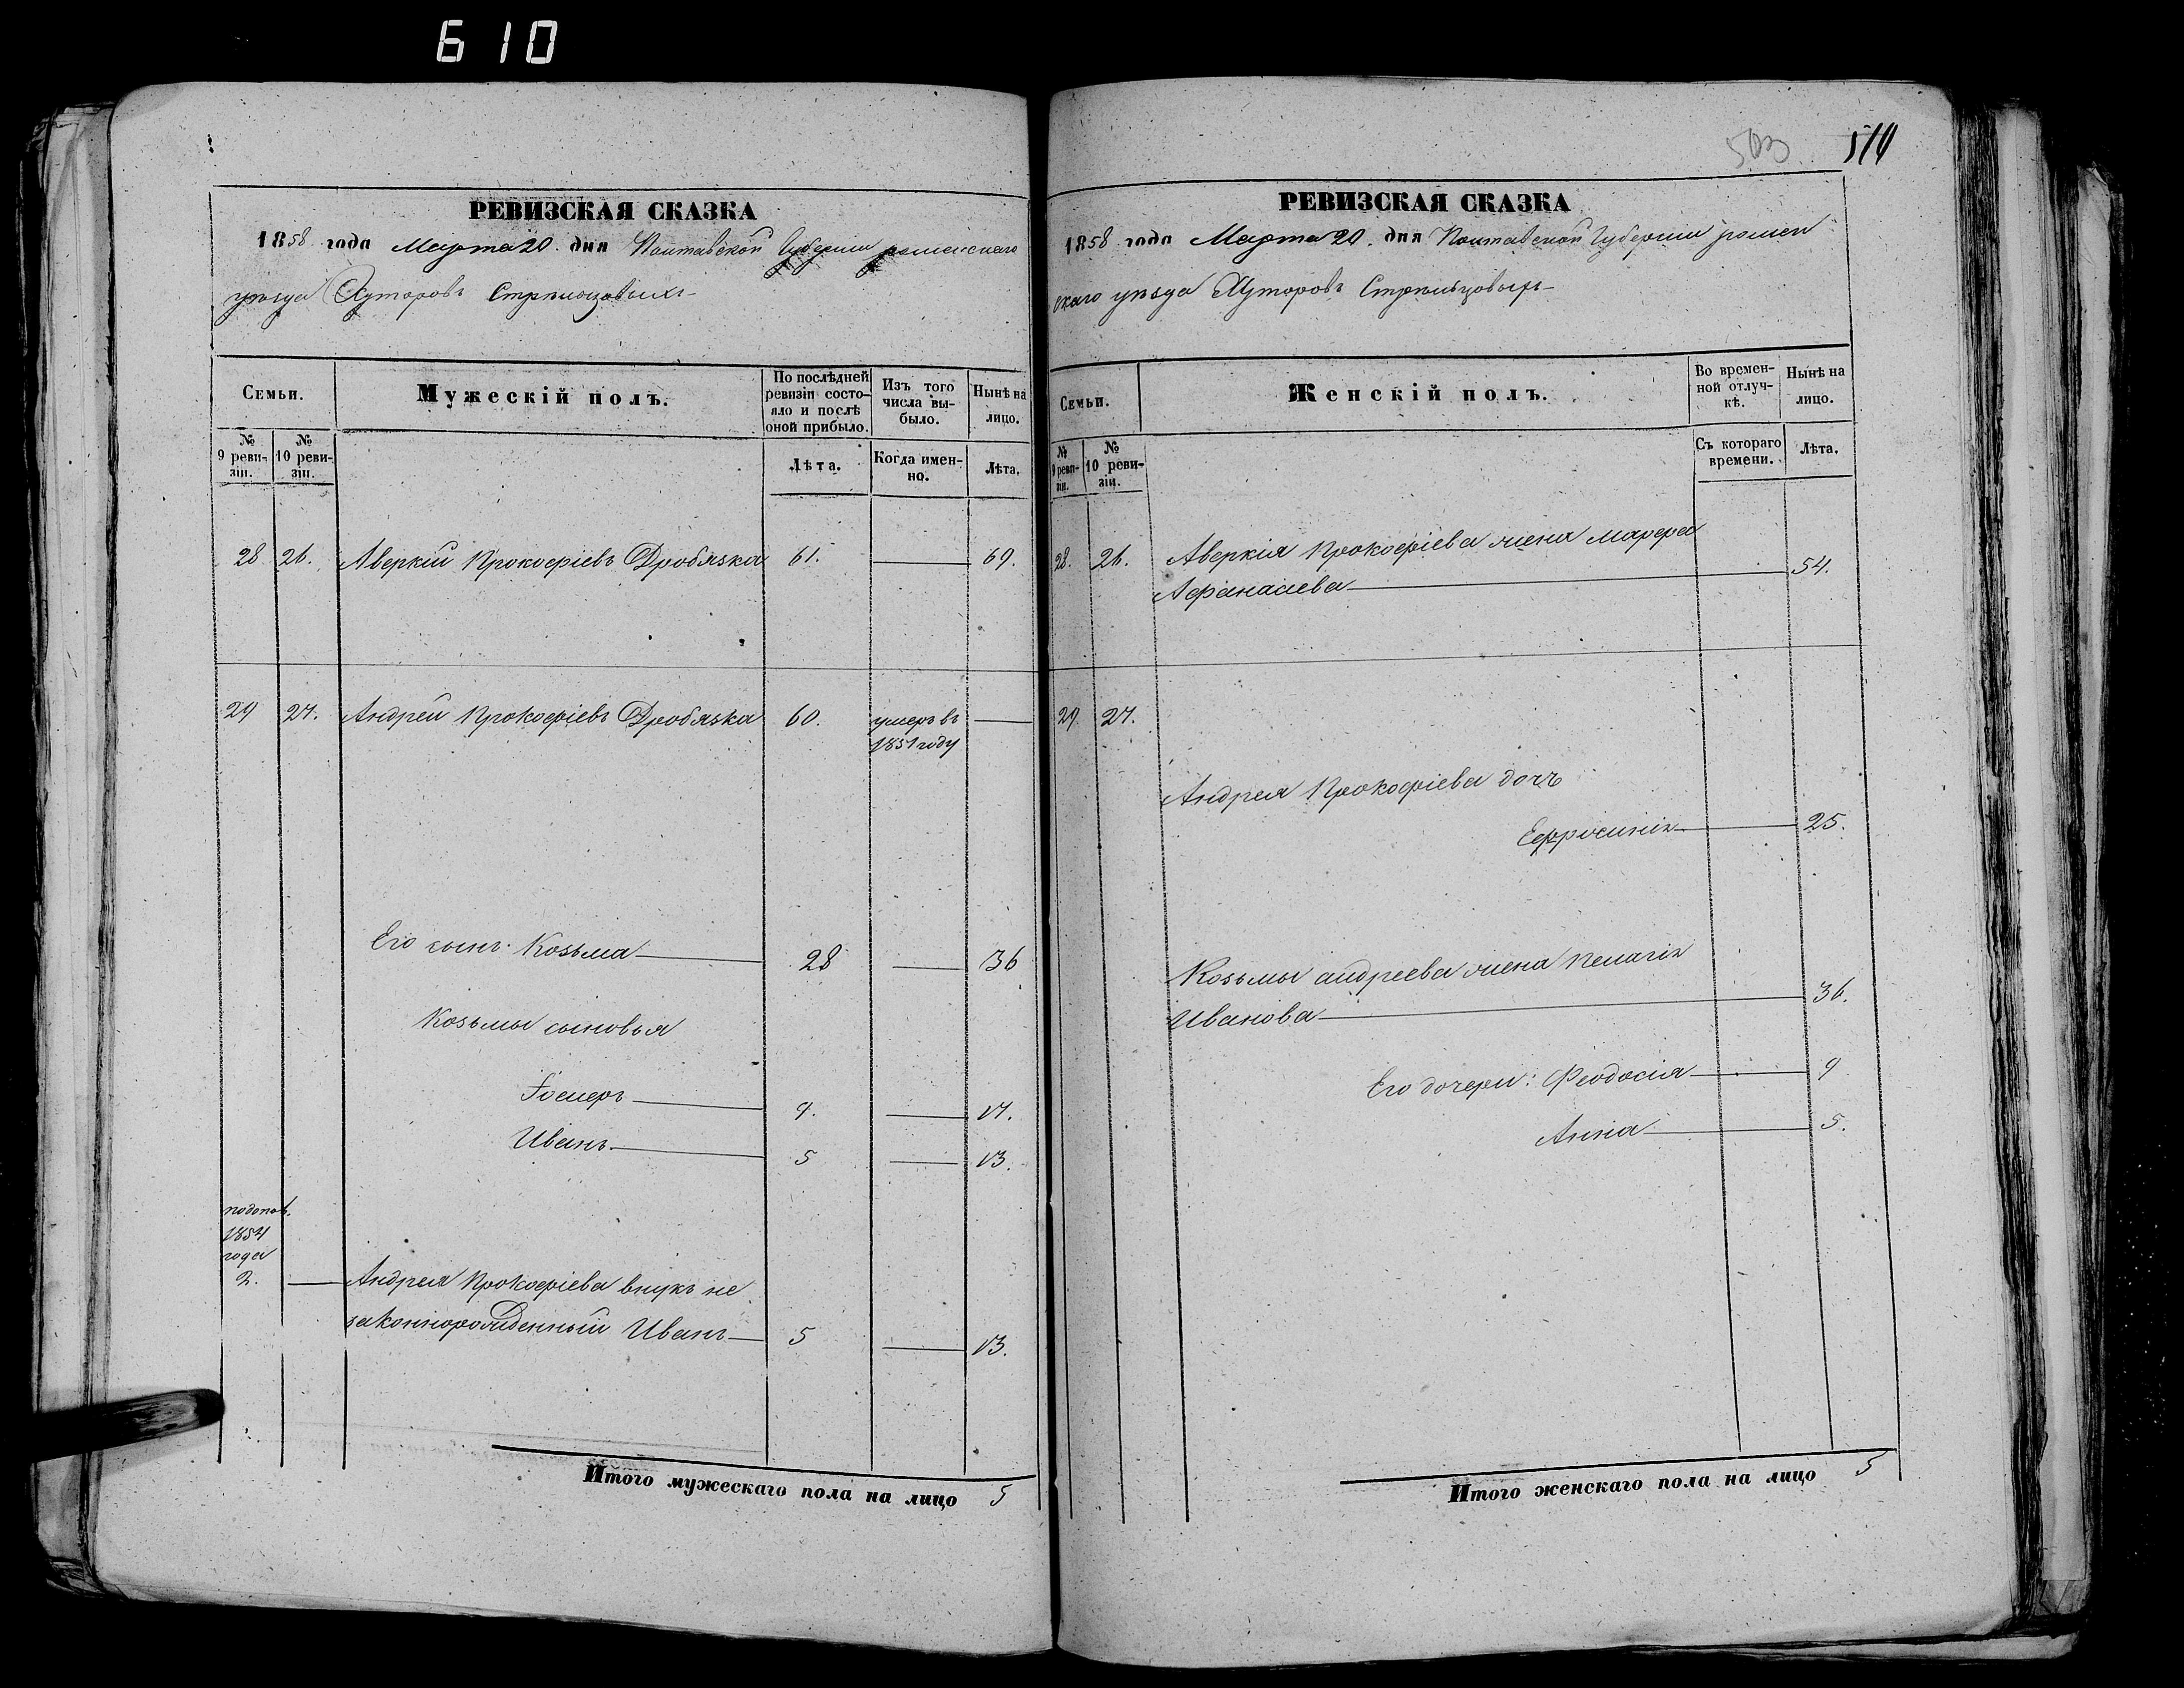 610
РЕВИЗСКАЯ СКАЗКА
1858 года Марта 20. дня Полтавской Губерніи роменскаго
уѣзда Хуторовъ Стрѣльцовыхъ
Семьи.
Мужескій полъ.
По послѣдней ревизіи состояло и послѣ оной прибыло.
Изъ того числа выбыло.
Нынѣ на лицо.
№ 9 ревизіи.
№ 10 ревизіи.
Лѣта.
Когда именно.
Лѣта.
28 26. Аверкій Прокофіевъ Дробязка 61. 69.
29 27. Андрей Прокофіевъ Дробязка 60. умеръ въ
1851 году
Его сынъ Козьма 28 36
Козьмы сыновья
9. 17.
Иванъ 5 13.
1854
года
2. Андрея Прокофіева внукъ не
законнорожденный Иванъ 5 13.
Итого мужескаго пола на лицо 5
503 510
РЕВИЗСКАЯ СКАЗКА
1858 года Марта 20. дня Полтавской Губерніи ромен
скаго уѣзда Хуторовъ Стрѣльцовыхъ
Семьи.
Женскій полъ.
Во временной отлучкѣ.
Нынѣ на лицо.
№ 9 ревизіи.
№ 10 ревизіи.
Съ котораго времени.
Лѣта.
28. 26. Аверкія Прокофіева жена Марфа
Афанасіева 54.
29. 27.
Андрея Прокофіева дочь
Ефросинія 25.
Козьмы андреева жена Пелагія
Иванова 36.
Его дочери: Феодосія 9
Анна 5.
Итого женскаго пола на лицо 5